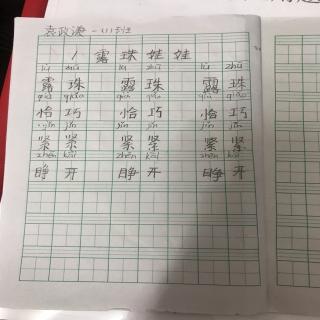 一(1)班
1 露珠娃娃
lù zhū lù zhū lù zhū
露珠 露珠 露珠
qià qiǎo qià qiǎo qià qiǎo
恰巧 恰巧 恰巧
jǐn jǐn jǐn jǐn jǐn jǐn
紧紧 紧紧 紧紧
zhēn kāi zhēn kāi zhēn kāi
睁开 睁开 睁开